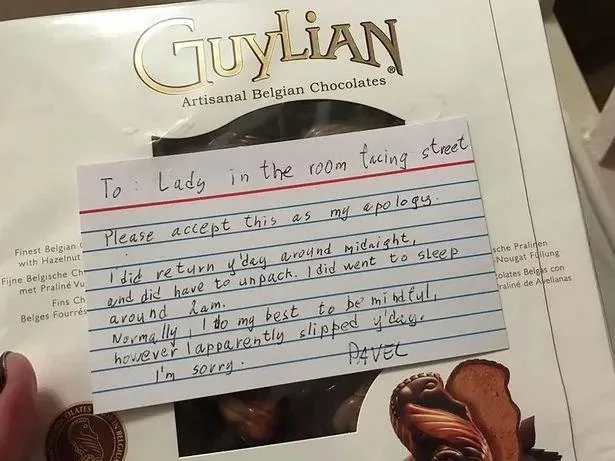 GUYLIAN®
Artisanal Belgian Chocolates
To : Lady in the room facing street
Please accept this as my apology.
I did return y'day around midnight,
and did have to unpack. I did went to sleep
around 2am.
Normally, I do my best to be mindful,
however I apparently slipped y'day.
I'm sorry.
PAVEL
Finest Belgian
with Hazelnut
Fijne Belgische Ch
met Praliné
Fins Ch
Belges Fourrés
sche Pralinen
-Nougat Füllung
colates Belgas con
raliné de Avellanas